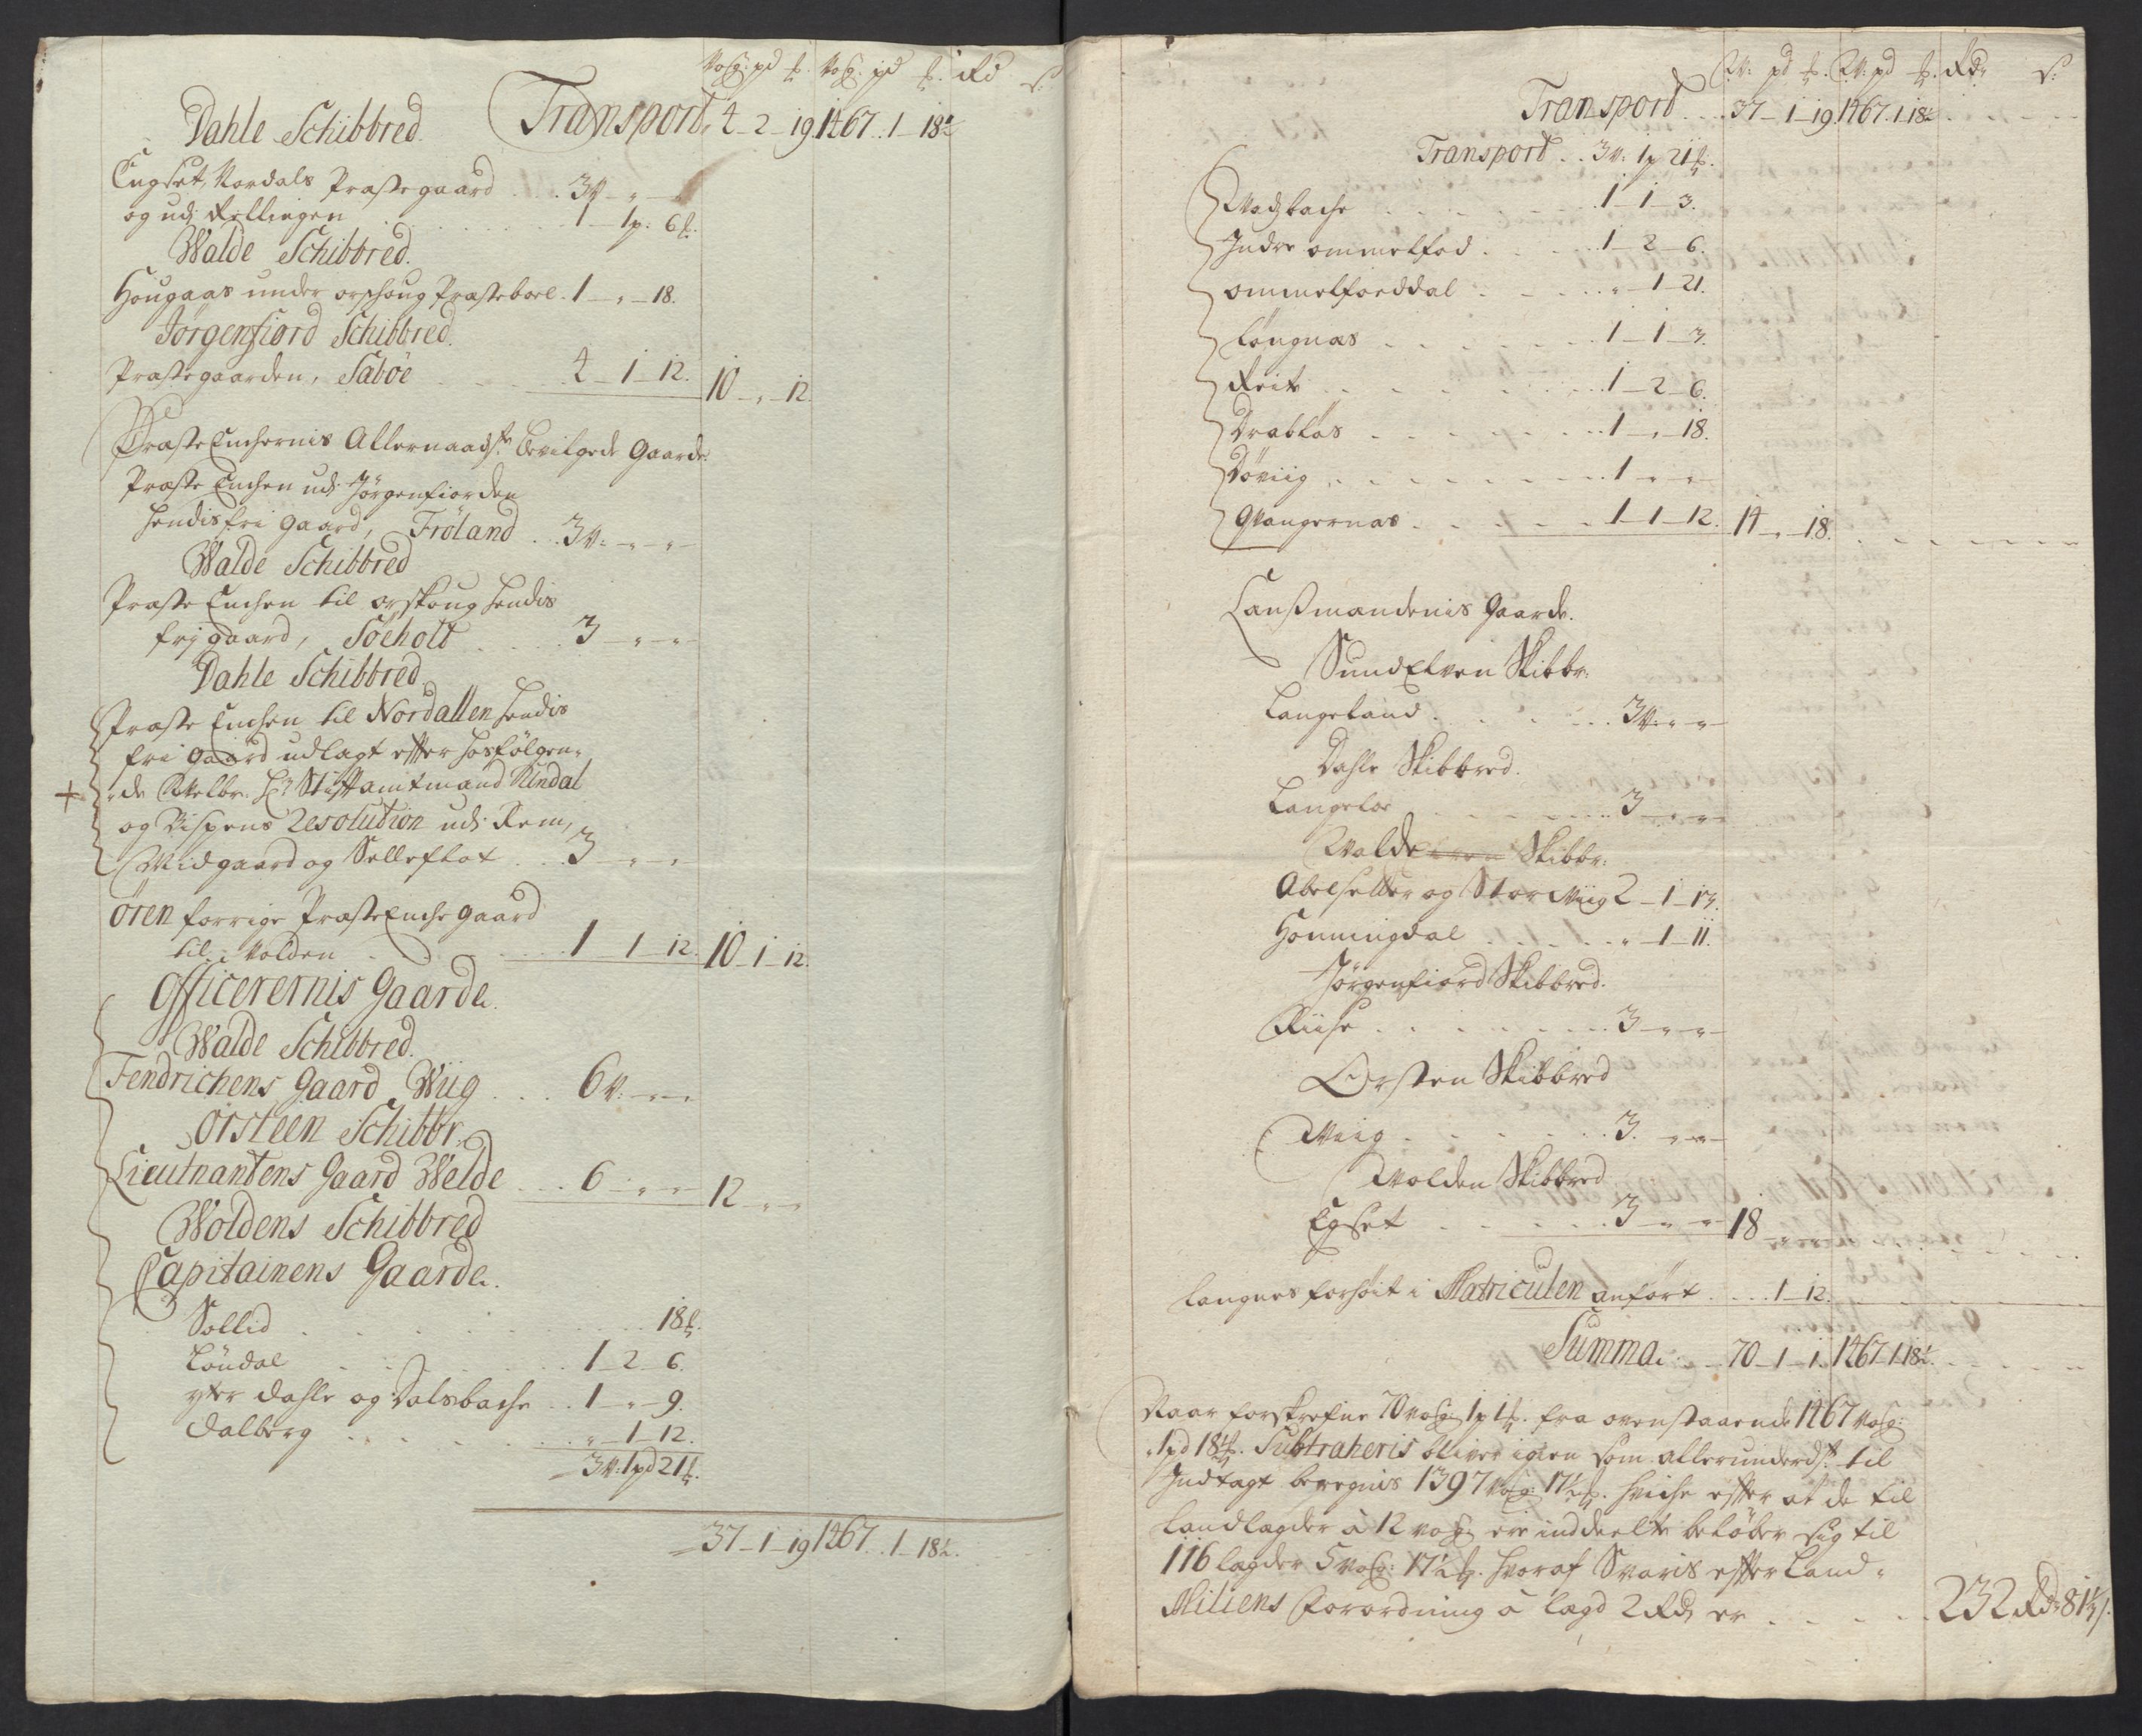 Vog: pd ℔. Vog: pd ℔. Rd s:
Dahle Schibbred. Transport. 4 - 2 - 19. 1467 . 1 - 18½
Engset, Nordals Præstegaard . . 3 V - „ -
og udj Rellingen . . . . . 1 - 1p: 6℔.
Walde Schibbred.
Hougaas under orschoug Præsteboel . 1 - „ - 18.
Jörgenfiord Schibbred.
Præstegaarden, Säböe . . . 4 - 1 - 12. 10 - „ - 12.
PræsteEnchernis Allernaadst. bevilgede Gaarde.
Præste Enchen udj Jörgenfiorden
hendis fri gaard, Fröland . . 3 V: - „ - „ -
Walde Schibbred
Præste Enchen til orskoug hendis
frj gaard, Söeholt . . . 3 - „ - „ -
Dahle Schibbred.
Præste Enchen til Nordallen hendis
fri gaard udlagt efter hosfölgen-
+ de Welbr. Hr. Stiftamtmand Undal
og Bispens Resolution udj Rem,
Midgaard og Selleflot . . 3 - „ - „
ören forrige PræsteEnche gaard
til Volden . . . . 1 - 1 - 12. 10 - 1 - 12.
Officerernis Gaarde.
Walde Schibbred.
Fendrichens Gaard Wiig . . . 6 V: - „ - „
örsteen Schibbr.
Lieutnantens Gaard Welde . . . 6 - „ - „ - 12 - „ - „
Woldens Schibbred
Capitainens Gaarde.
Sollid . . . . . . 18℔.
Löudal . . . . . . 1 - 2 - 6.
yter Dahle og Dalsbache . . 1 - „ - 9.
Dalberg . . . . . . „ - 1 - 12.
3 V: 1pd 21℔.
37 - 1 - 19 1467 . . 1 - 18½.
W: pd ℔. W: pd ℔. Rdr s:
Transport . . . 37 - 1 - 19. 1467 . 1 . 18½ . . . .
Transport . . 3 V: 1p 21℔.
Wadzbache . . . . . . 1 - 1 - 3.
Indre ommelfod . . . . 1 - 2 - 6.
ommelforddal . . . . „ - 1 - 21.
Löngnæs . . . . . . 1 - 1 - 3.
Reite . . . . . . 1 - 2 - 6.
Drablös . . . . . . 1 - „ - 18.
Döviig . . . . . . 1 - „ - „
Qvangernæs . . . . 1 - 1 - 12. 14 - „ - 18. . . . .
Lanßmandenis Gaarde.
SundElven Skibbr:
Langeland . . . . . 3 V: - „ - „ -
Dahle Skibbred.
Langeloe . . . . . 3 - „ - „ -
Walde Skibbr:
Abelsetter og Stor Wiig 2 - 1 - 13.
Honningdal . . . . „ - 1 - 11.
Jörgenfiord Skibbred.
Riise . . . . . . 3 - „ - „ -
Örsten Skibbred
Wiig . . . . . . 3. - „ - „ -
Wolden Skibbred
Egset . . . . . 3 - „ - „ - 18 - „ - . . . .
Langnes forhöit i Matriculen anfört . . . 1 - 12. . . . .
Summa . . 70 - 1 - 1. 1467 - 1 . 18½. . . . .
Naar forskrefne 70 vog: 1p 1℔. fra ovenstaaende 1467 vog:
„ 1pd 18½℔. Subtraheris bliver igien som allerunderdst. til
Indtægt beregnis 1397 vog: 17½℔. hvilche efter at de til
Landlægder à 12 vog: ere inddeelte belöber sig til
116 lægder 5 vog: 17½℔. hvoraf Svaris efter Land-
Miliens Forordning à lægd 2 Rdr er . . . . . 232 Rdr 81½ s.